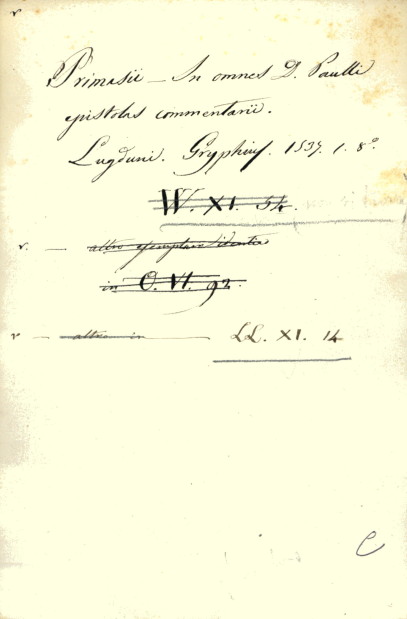 v
Primasii — In omnes D. Paulli
epistolas commentarii.
Lugduni. Gryphius. 1537. 1. 8°
W. XI. 54.
v. — altro esemplare identico
in O. VI. 92.
v — altro in — LL. XI. 14
C